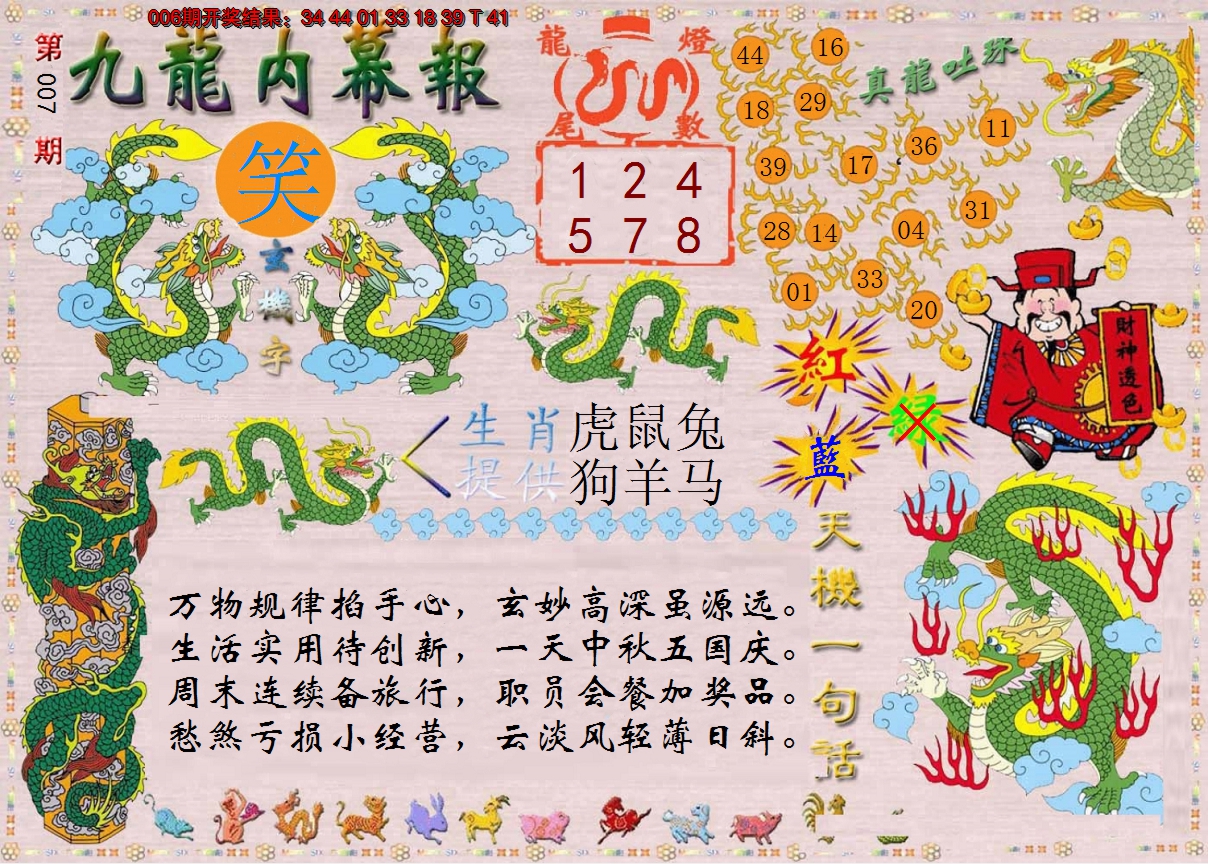 006期开奖结果：34 44 01 33 18 39 T 41
第
007
期
九龍内幕報
笑
玄
機
字
龍 燈
尾 數
1 2 4
5 7 8
真龍吐珠
44
16
18
29
36
11
39
17
28
14
04
31
01
33
20
紅
绿
藍
財神透色
生肖 虎鼠兔
提供 狗羊马
天機一句話
万物规律掐手心，玄妙高深虽源远。
生活实用待创新，一天中秋五国庆。
周末连续备旅行，职员会餐加奖品。
愁煞亏损小经营，云淡风轻薄日斜。